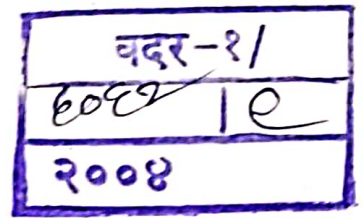 वदर-१/
६०६२ | ९
२००४